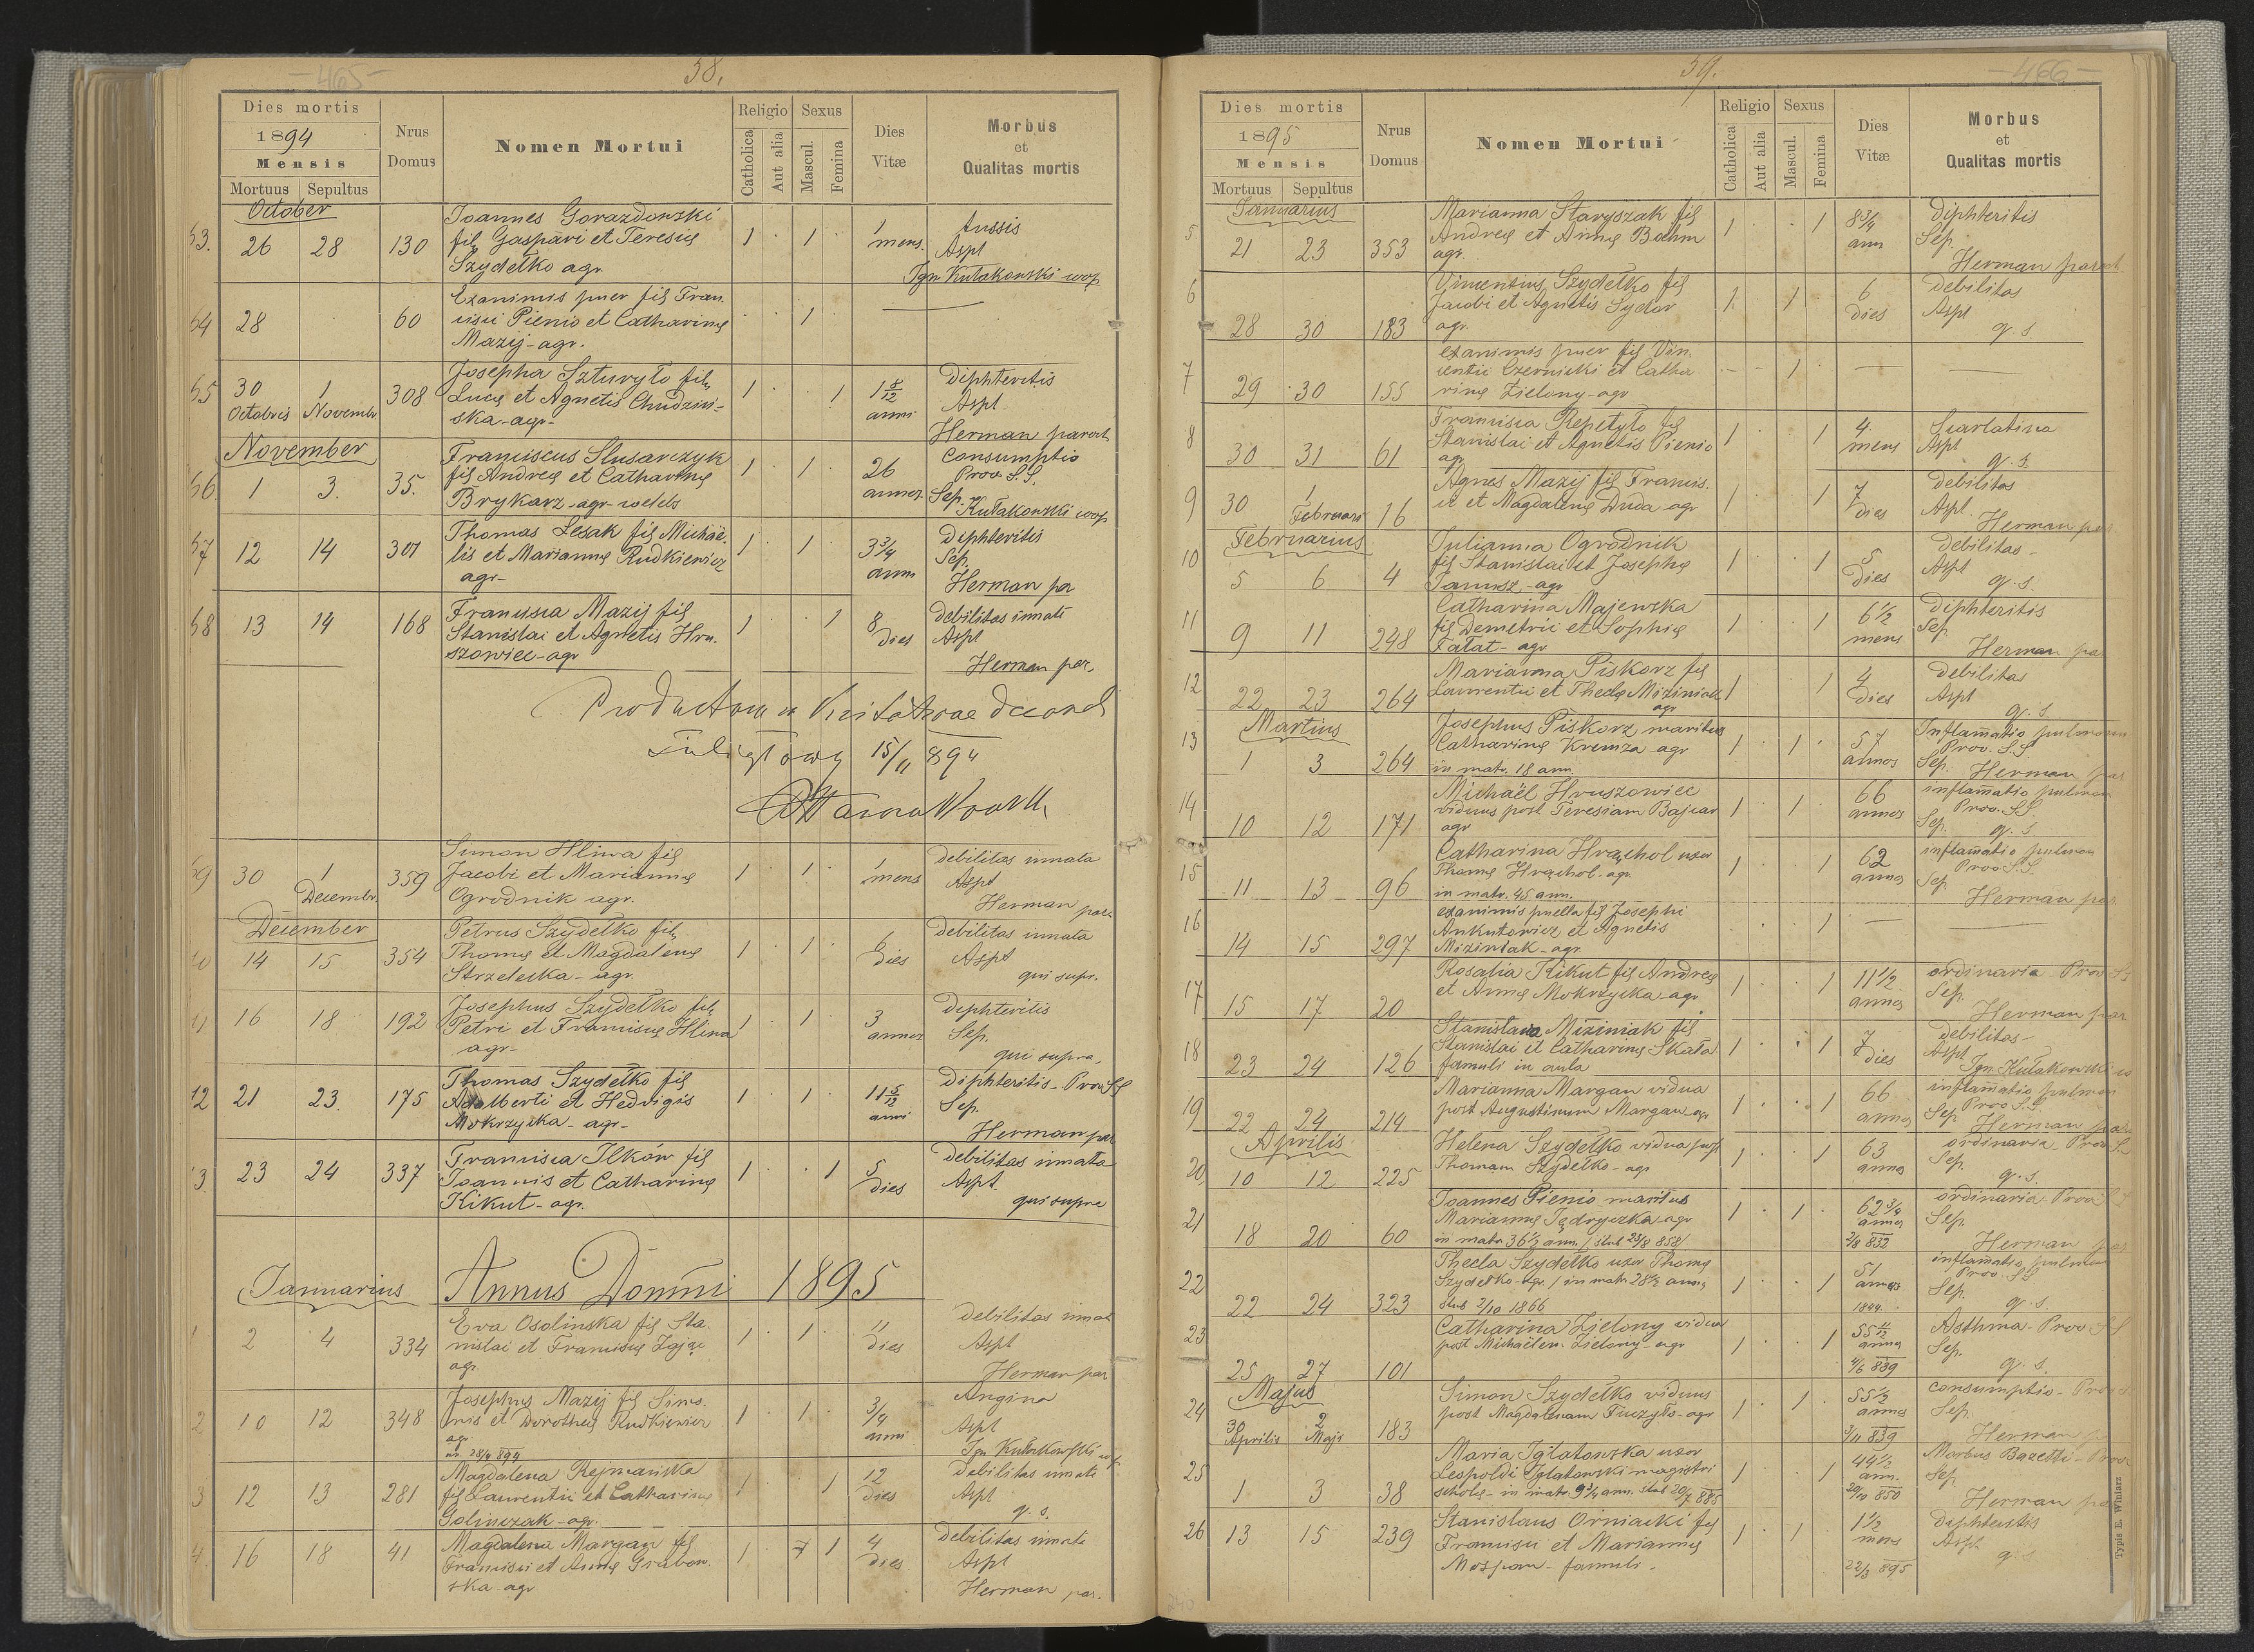 - 465 -
38.
Dies mortis
1894
Mensis
Mortuus Sepultus
Nrus
Domus
Nomen Mortui
Religio
Catholica
Aut alia
Sexus
Mascul.
Femina
Dies
Vitæ
Morbus
et
Qualitas mortis
October
26 28 130
Joannes Gorazdowski
filą Gaspari et Teresię
Szydełko agr
1 1
1
mens.
tussis
Aspt
Ign Kułakowski coop
64 28 60
Exanimis puer filę Fran-
cisci Pienio et Catharinę
Mazij - agr.
1
65 30 1 308
Octobris Novembr
Josepha Szturyło filę
Lucę et Agnetis Chudziń-
ska - agr -
1 1
1 8/12
anni
Diphteritis
Aspt
Herman paroch
November
1 3. 35.
Franciscus Slusarczyk
filę Andreę et Catharinę
Brykarz - agr -
1 1
26
annos
Consumptio
Prov. S.S.
Sep.
Kułakowski coop
67 12 14 301
Thomas Lesak filę Michaë-
lis et Mariannę Rudkiewicz
agr -
1 1
3 3/4
anni
Diphteritis
Sep.
Herman pa
68 13 14 168
Francisca Mazij filę
Stanislai et Agnetis Hru-
szowiec - agr
1 1
8
dies
debilitas innata
Aspt
Herman par,
15/11 894
30 1 359
Decembr.
Simon Hliwa filę
Jacobi et Mariannę
Ogrodnik agr.
1 1
1
mens
debilitas innata
Aspt
Herman par.
December
14 15 354
Petrus Szydełko filę
Thomę et Magdalenę
Strzelecka - agr.
1 1
6
dies
debilitas innata
Aspt
qui supr.
16 18 192
Josephus Szydełko filę
Petri et Franciscę Hliwa
agr -
1 1
3
annos
Diphteritis
Sep.
qui supra,
12 21 23. 175
Thomas Szydełko filę
Adalberti et Hedvigis
Mokrzycka - agr -
1 1
11 5/12
anni
Diphteritis - Prov SS
Sep.
Herman par
23 24 337
Francisca Ilków filę
Joannis et Catharinę
Kikut - agr.
1 1
5
dies
debilitas innata
Aspt.
qui supra
Januarius Annus Domini 1895
1 2 4 334
Eva Osolinska filę Sta-
nislai et Franciscę Zając
agr.
1 1
11
dies
debilitas innat
Aspt
Herman par
2 10 12 348
Josephus Mazij filę Simo-
nis et Dorotheę Rudkiewicz
agr
28/4 894
1 1
3/4
anni
Angina
Aspt
Ign Kułakowski
3 12 13 281
Magdalena Rejmańska
filę Laurentii et Catharinę
Golinczak - agr.
1 1
12
dies
debilitas innata
Aspt
q. s.
4. 16 18 41
Magdalena Margan filę
Francisci et Annę Grabow-
ska - agr
1 1
4
dies
debilitas innata
Aspt
Herman par.
39.
- 466 -
Dies mortis
1895
Mensis
Mortuus Sepultus
Nrus
Domus
Nomen Mortui
Religio
Catholica
Aut alia
Sexus
Mascul.
Femina
Dies
Vitæ
Morbus
et
Qualitas mortis
Januarius
5 21 23 353
Marianna Staryszak filę
Andreę et Annę Boehm
agr.
1 1
8 3/4
ann
Diphteritis
Sep.
Herman paroch
6 28 30 183
Vincentius Szydełko filę
Jacobi et Agnetis Sydor
agr.
1 1
6
dies
debilitas
Aspt
q. s
7 29 30 155
exanimis puer filę Vin-
centii Czernicki et Catha
rinę Zielony - agr
1
8 30 31 61
Francisca Repetyło filę
Stanislai et Agnetis Pienio
agr
1 1
4
mens
Scarlatina
Aspt
q. s.
9 30 1 16
Februari
Agnes Mazij filę Francis-
ci et Magdalenę Duda agr
1 1
7
dies
debilitas
Aspt.
Herman par
Februarius
10 5 6 4
Julianna Ogrodnik
filę Stanislai et Josephę
Janusz - agr
1 1
5
dies
debilitas -
Aspt
q. s.
11 9 11 248
Catharina Majewska
filę Demetrii et Sophię
Fałat - agr
1 1
6 1/2
mens
Diphteritis
Sep
Herman pa
12 22 23 264
Marianna Piskorz filę
Laurentii et Theclę Miziniak
agr
1 1
4
dies
debilitas
Aspt
q. s.
Martius
13 1 3 264
Josephus Piskorz maritus
Catharinę Kremza - agr
in matr. 18 ann.
1 1
57
annos
Inflamatio pulmonum
Prov. S.S
Sep. Herman par
14 10 12 171
Michaël Hruszowiec
viduus post Teresiam Bajcar
agr
1 1
66
annos
inflamatio pulmon
Prov. SS
Sep. q. s.
15 11 13 96
Catharina Hrąchol uxor
Thomę Hrąchol - agr.
in matr. 45 ann.
1 1
62
annos
inflamatio pulmon
Prov S.S.
Sep
Herman par.
16 14 15 297
exanimis puella filę Josephi
Ankutowicz et Agnetis
Miziniak - agr.
1
17 15 17 20
Rosalia Kikut filę Andreę
et Annę Mokrzycka - agr
1 1
11 1/2
annos
ordinaria - Prov SS
Sep.
Herman par
18 23 24 126
Stanislava Miziniak filę
Stanislai et Catharinę Skała
famuli in aula
1 1
7
dies
debilitas -
Aspt
Ign. Kułakowski
19 22 24 214
Marianna Margan vidua
post Augustinum Margan - agr
1 1
66
annos
inflamatio pulmon
Prov S.S.
Sep Herman par
Aprilis
20 10 12 225
Helena Szydełko vidua post
Thomam Szydełko - agr
1 1
63
annos
ordinaria Prov S.S
Sep.
q. s.
21 18 20 60
Joannes Pienio maritus
Mariannę Jędryczka - agr
in matr 36 1/2 ann. / slub 23/8 858/
1 1
62 3/4
annos
2/8 832
ordinaria Prov SS
Sep.
Herman par
22 22 24 323
Thecla Szydełko uxor Thomę
Szydełko - agr. / in matr 28 1/2 annos
slub 2/10 1866
1 1
51
annos
1844
inflamatio pulmon
Prov SS
Sep.
q. s.
23 25 27 101
Catharina Zielony vidua
post Michaëlem Zielony - agr
1 1
55 11/12
annos
4/6 839
Asthma - Prov SS
Sep.
q. s.
Majus
24 30 2 183
Aprilis Maji
Simon Szydełko viduus
post Magdalenam Tuczyło - agr
1 1
55 1/2
annos
3/11 839
consumptio - Prov S.
Sep.
Herman
25 1 3 38
Maria Iglatowska uxor
Leopoldi Iglatowski magistri
scholę - in matr. 9 3/4 ann. slub 20/7 885
1 1
44 1/2
ann.
20/10 850
Morbus Bazetti - Prov
Sep.
Herman par
26 13 15 239
Stanislaus Orniacki filę
Francisci et Mariannę
Mospan - famuli.
1 1
1 1/2
mens
22/3 895
Diphteritis
Aspt.
q. s
Typis E. Winiarz
240